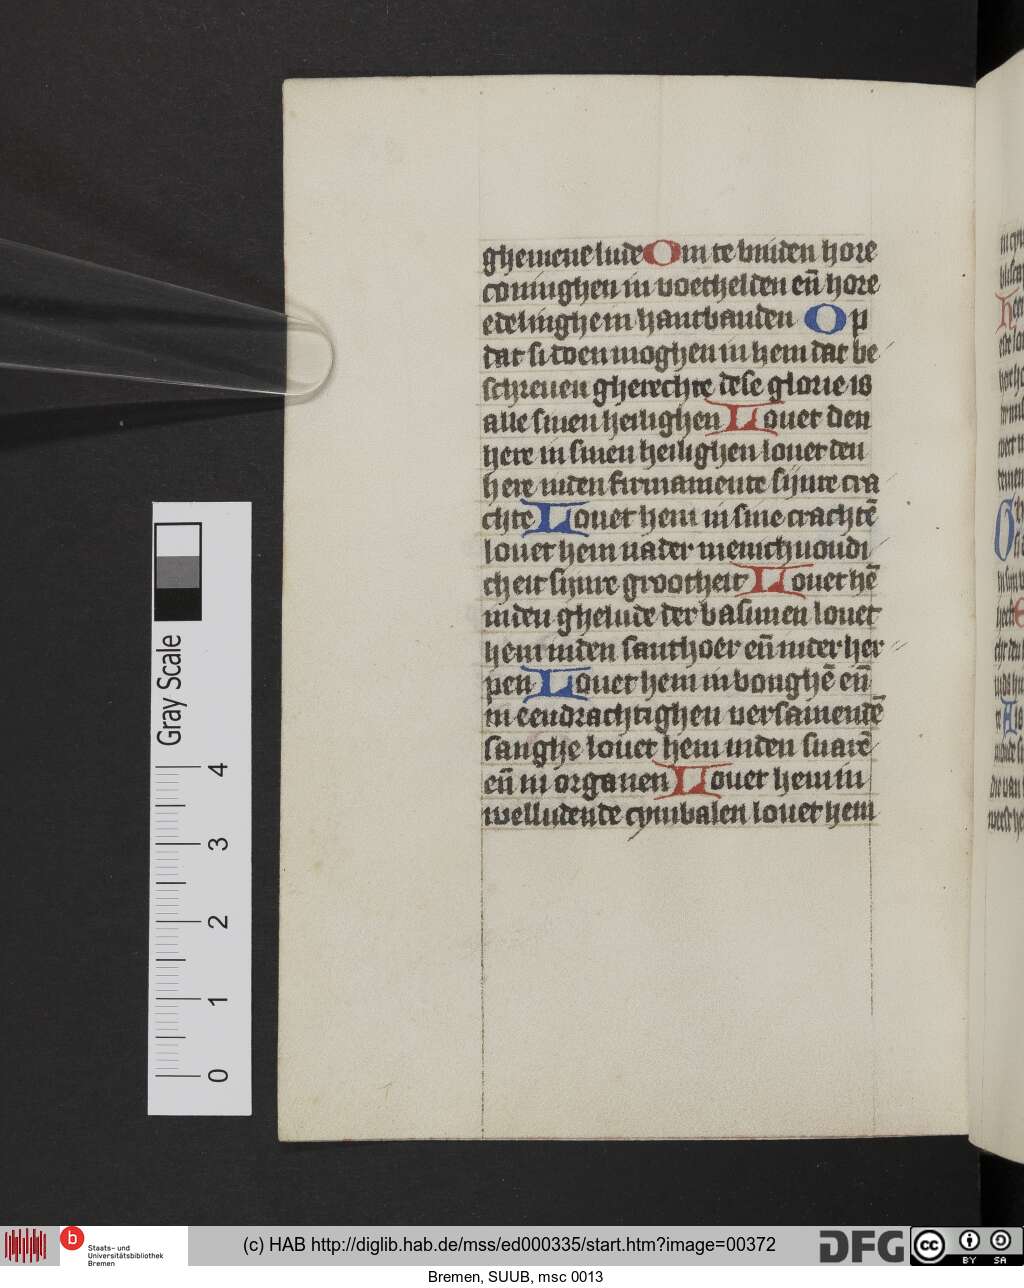 ghemene lude Om te binden hore
coninghen in voethelden en̄ hore
edelinghe in hantbanden Op
dat si doen moghen in hem dat be
screuen gherechte dese glorie is
alle sinen heilighen Louet den
here in sinen heilighen louet den
here inden firmamente sijnre cra
chte Louet hem in sine crachtē
louet hem nader menichuoudi
cheit sijnre grootheit Louet hē
inden ghelude der basunen louet
hem inden santhoer en̄ inder her
pen Louet hem in bonghē en̄
in eendrachtighen versamendē
sanghe louet hem inden snarē
en̄ in organen Louet hem in
welludende cymbalen louet hem
Gray Scale
4
3
2
1
0
b
Staats- und
Universitätsbibliothek
Bremen
(c) HAB http://diglib.hab.de/mss/ed000335/start.htm?image=00372
DFG
cc
BY SA
Bremen, SUUB, msc 0013